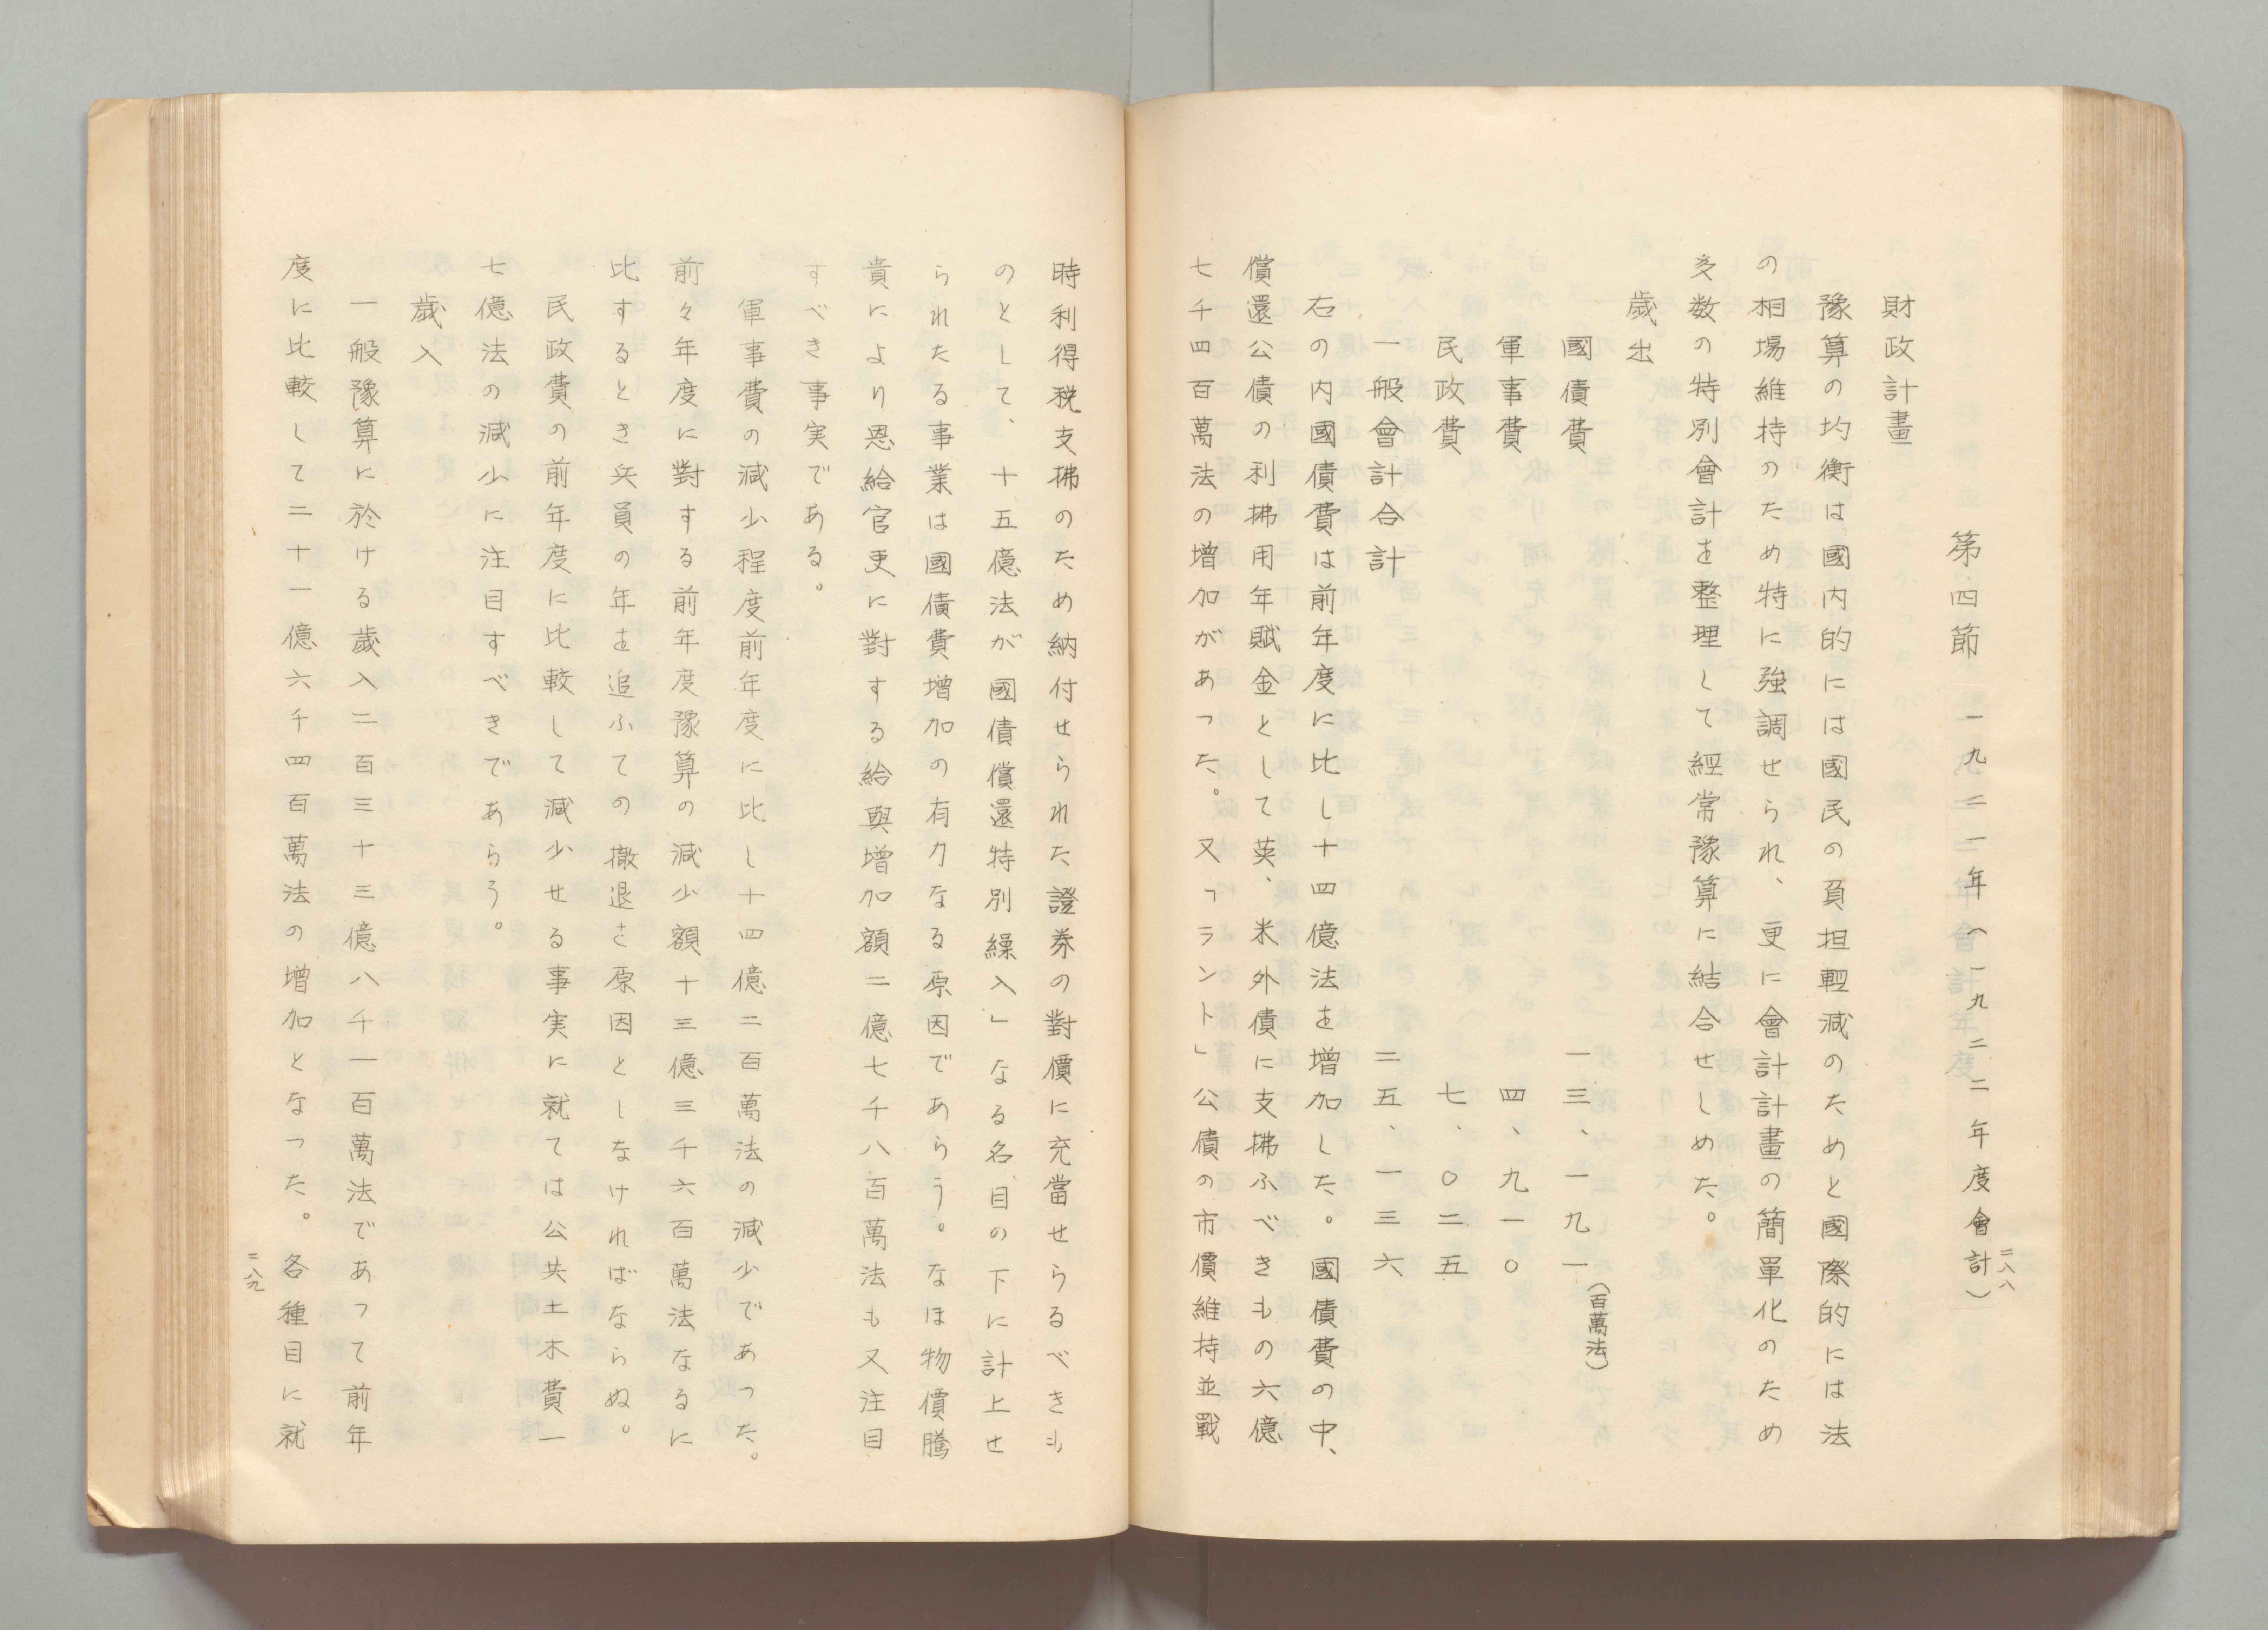 二八八
第四節　一九二一年（一九二二年度會計）
財政計畫
豫算の均衡は國内的には國民の負担輕減のためと國際的には法
の相場維持のため特に強調せられ、更に會計計畫の簡單化のため
多数の特別會計を整理して經常豫算に結合せしめた。
歳出
（百萬法）
國債費　一三、一九一
軍事費　四、九一〇
民政費　七、〇二五
一般會計合計　二五、一三六
右の内國債費は前年度に比し十四億法を増加した。國債費の中、
償還公債の利拂用年賦金として英、米外債に支拂ふべきもの六億
七千四百萬法の増加があつた。又「フラント」公債の市價維持並戰
時利得税支拂のため納付せられた證券の對價に充當せらるべきも
のとして、十五億法が國債償還特別繰入」なる名目の下に計上せ
られたる事業は國債費増加の有力なる原因であらう。なほ物價騰
貴により恩給官吏に對する給與増加額二億七千八百萬法も又注目
すべき事実である。
軍事費の減少程度前年度に比し十四億二百萬法の減少であつた。
前々年度に對する前年度豫算の減少額十三億三千六百萬法なるに
比するとき兵員の年を追ふての撤退を原因としなければならぬ。
民政費の前年度に比較して減少せる事実に就ては公共土木費一
七億法の減少に注目すべきであらう。
歳入
一般豫算に於ける歳入二百三十三億八千一百萬法であつて前年
度に比較して二十一億六千四百萬法の増加となつた。各種目に就
二八九